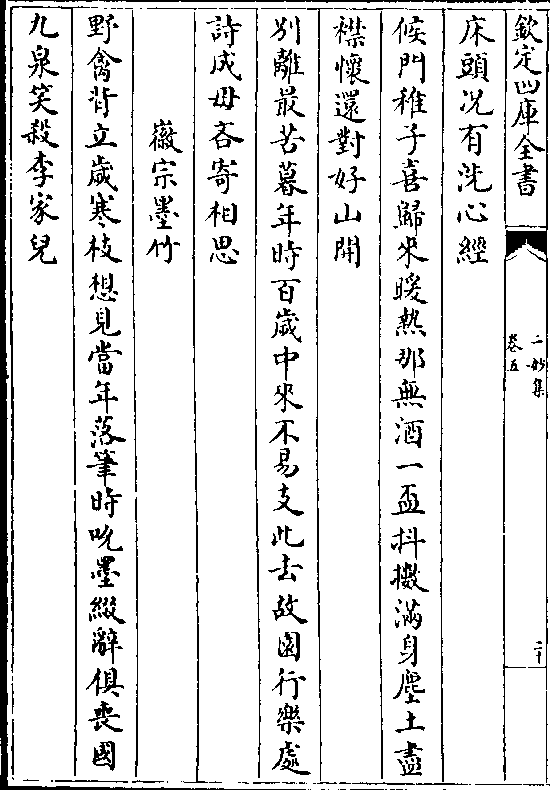 欽定四庫全書
二妙集
卷五
二十
床頭况有洗心經
候門稚子喜歸來暖熱那無酒一盃抖擻滿身塵土盡
襟懷還對好山開
别離最苦暮年時百歲中來不易支此去故園行樂處
詩成毋吝寄相思
徽宗墨竹
野禽背立歲寒枝想見當年落筆時吮墨綴辭俱喪國
九泉笑殺李家兒